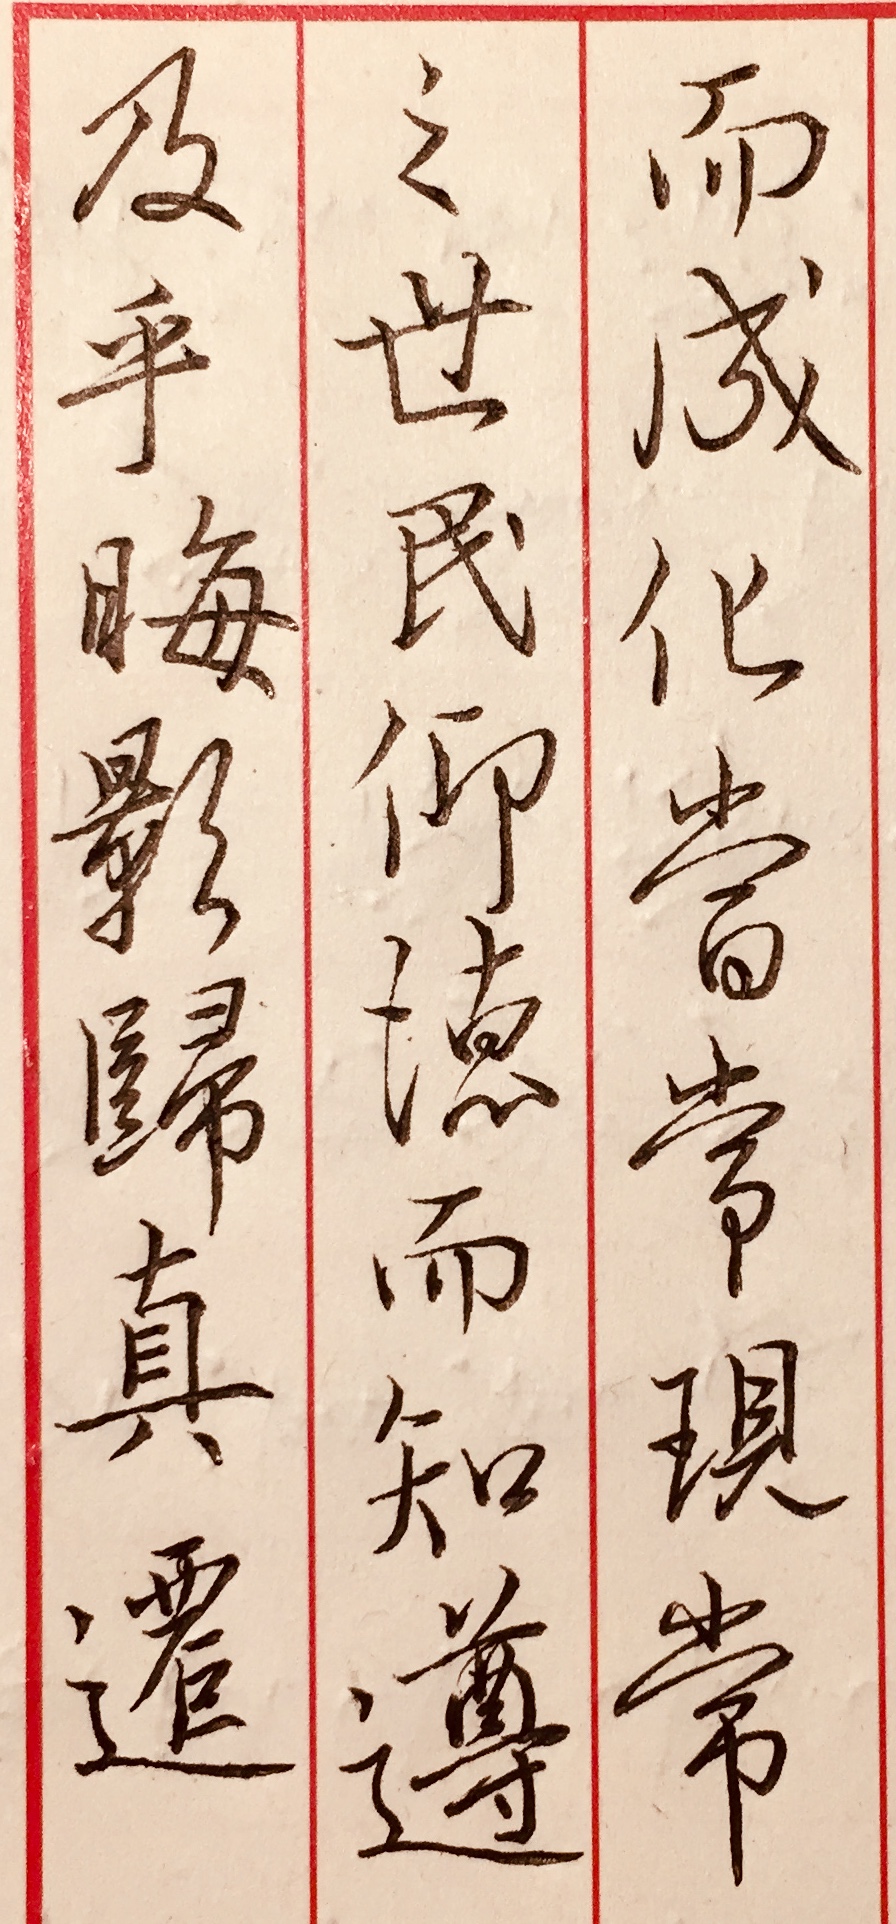 而成化當常現常
之世民仰德而知遵
及乎晦影歸真遷